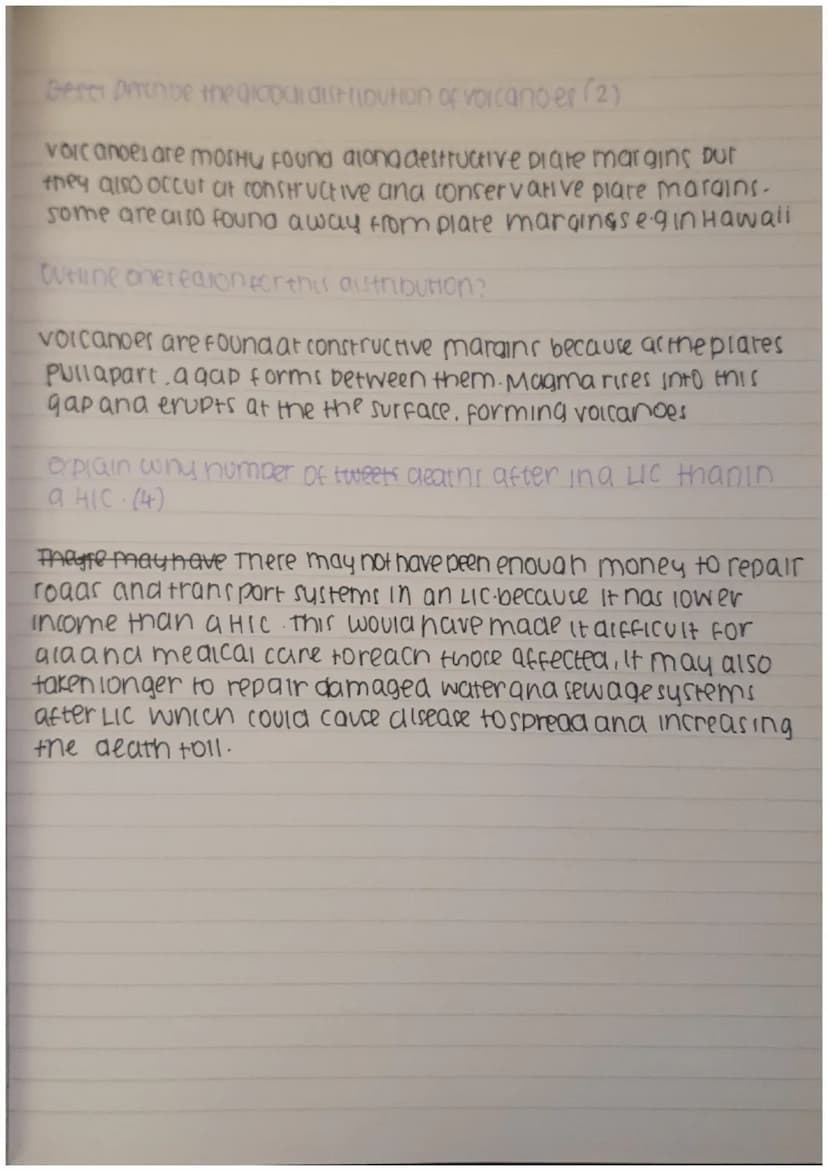 Describe the global distribution of volcanoes (2)
volcanoes are mostly found along destructive plate margins but
they also occur at constructive and conservative plate margins.
some are also found away from plate margings eg in Hawaii
Outline one reason for this distribution?
volcanoes are found at constructive margins because as the plates
pull apart, a gap forms between them. Magma rises into this
gap and erupts at the the surface, forming volcanoes
explain why number of tweets deaths after in a LIC than in
a HIC. (4)
There may have There may not have been enough money to repair
roads and transport systems in an LIC. because it has lower
income than a HIC. This would have made it difficult for
aid and medical care to reach those affected, it may also
taken longer to repair damaged water and sewage systems
after LIC which could cause disease to spread and increasing
the death toll.